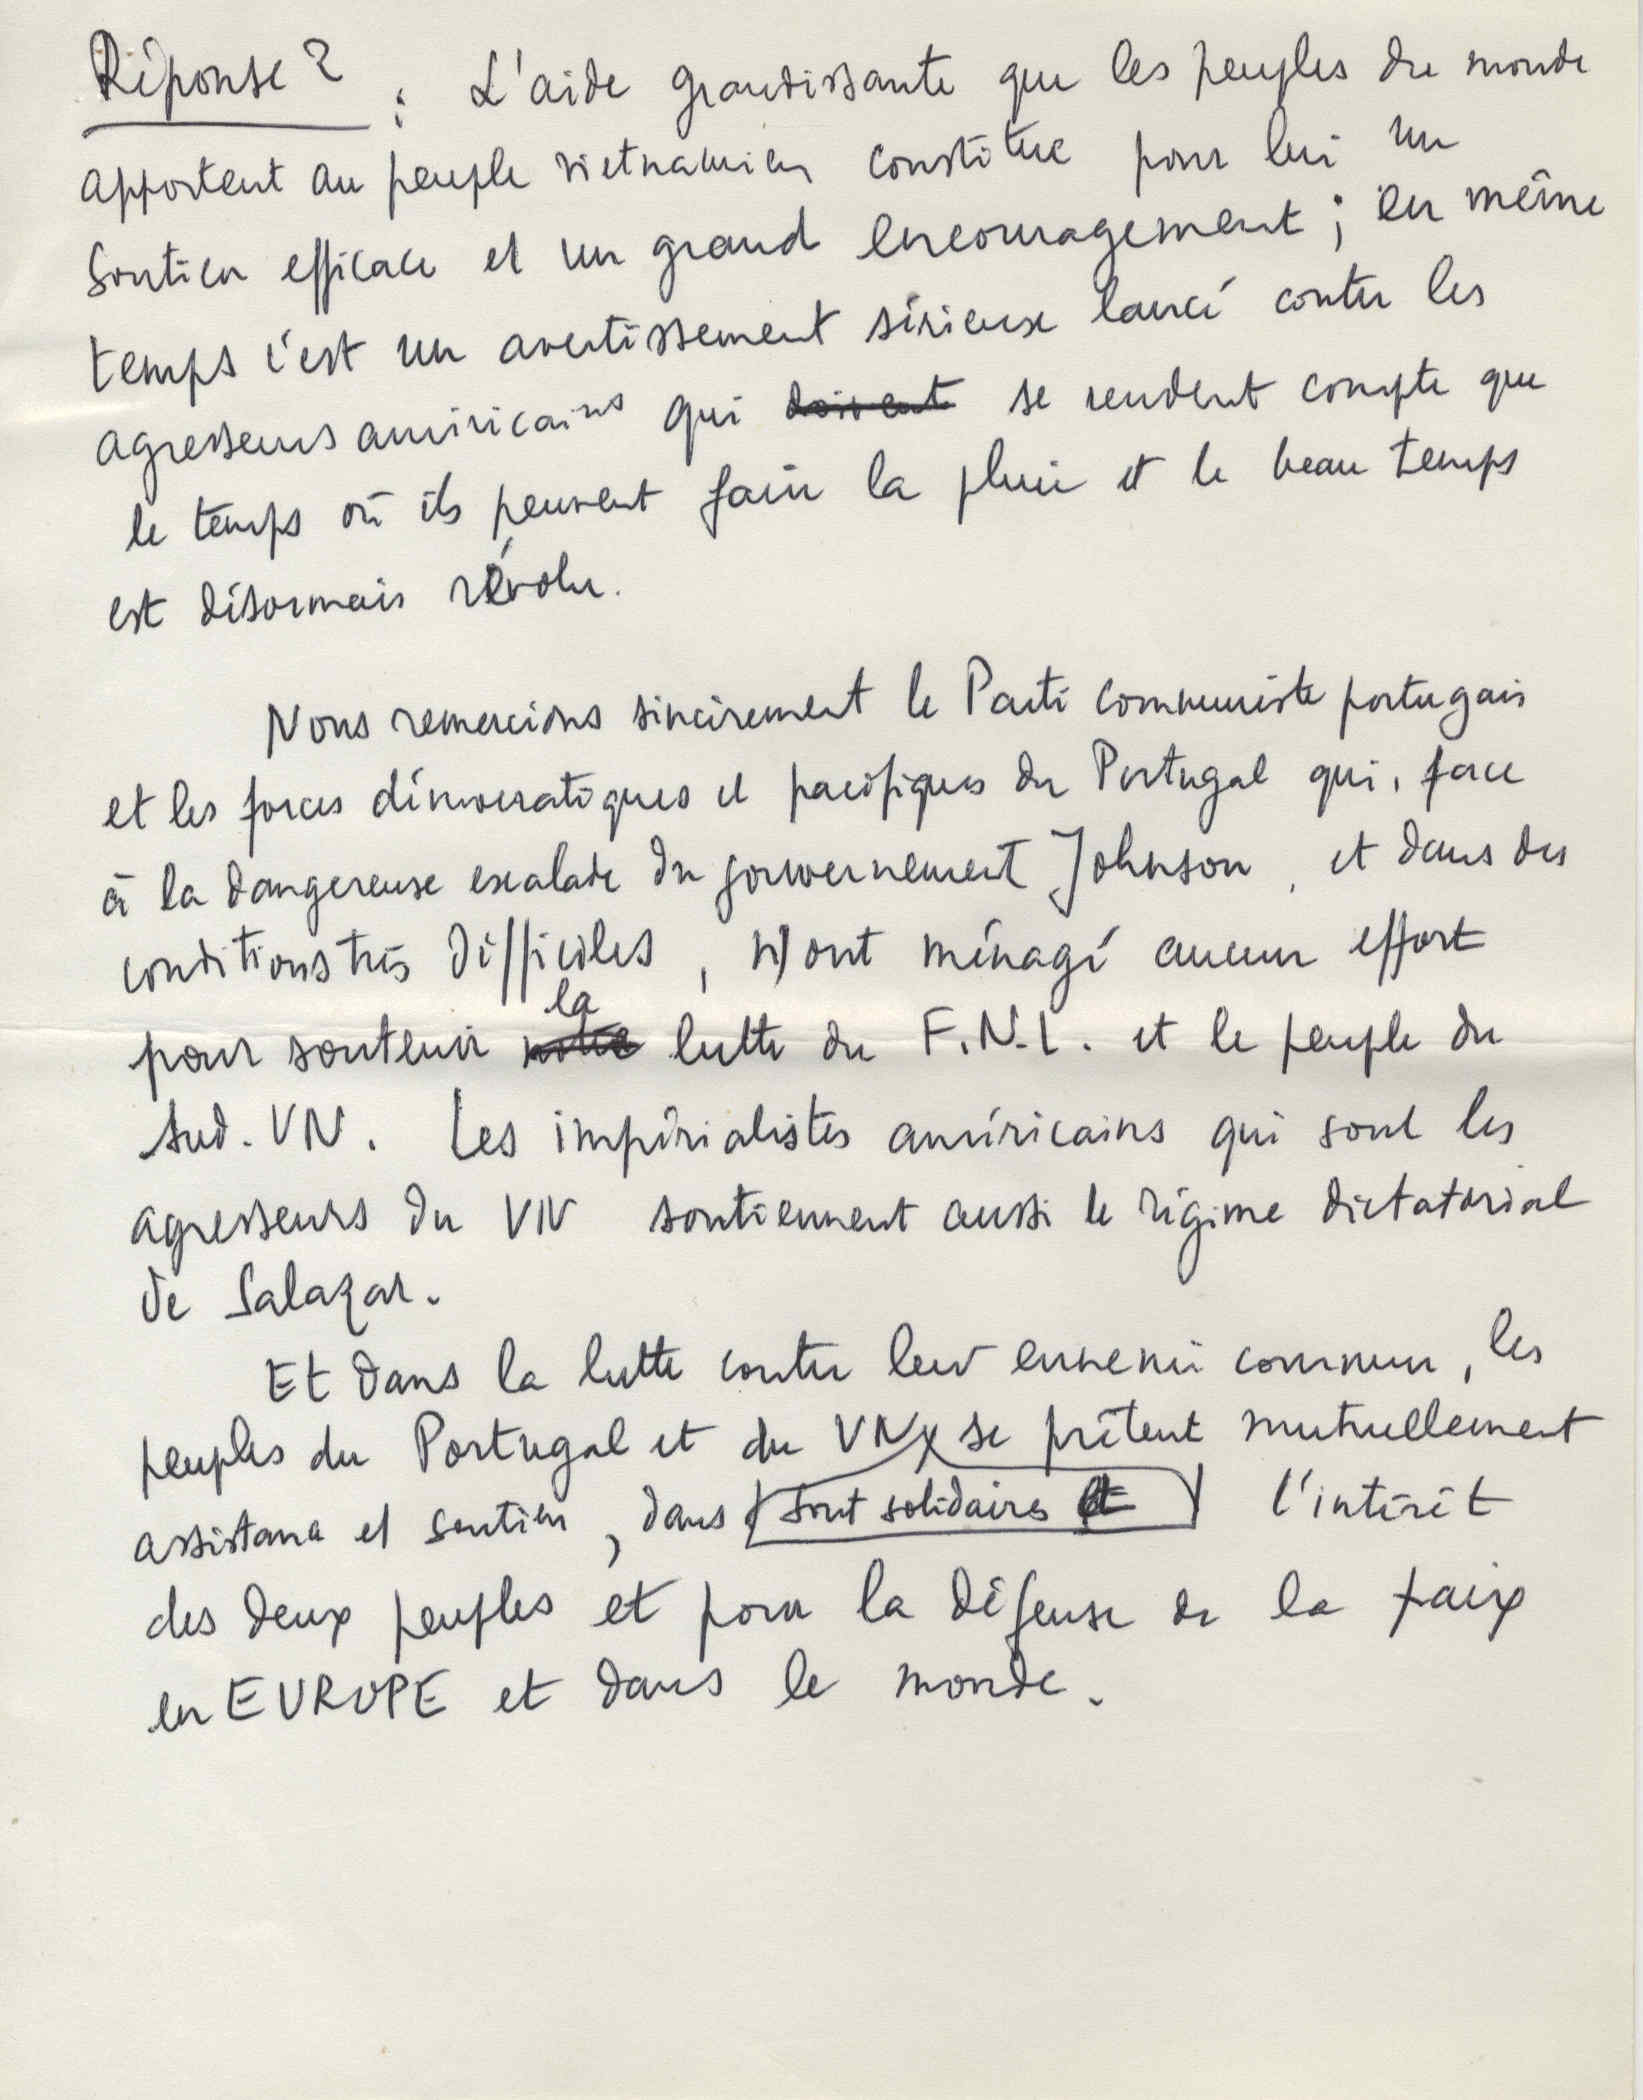 Réponse 2 : L'aide grandissante que les peuples du monde
apportent au peuple vietnamien constitue pour lui un
soutien efficace et un grand encouragement ; en même
temps c'est un avertissement sérieux lancé contre les
agresseurs américains qui doivent se rendent compte que
le temps où ils peuvent faire la pluie et le beau temps
est désormais révolu.
Nous remercions sincèrement le Parti communiste portugais
et les forces démocratiques et pacifiques du Portugal qui, face
à la dangereuse escalade du gouvernement Johnson, et dans des
conditions très difficiles, n'ont ménagé aucun effort
la
pour soutenir notre lutte du F.N.L. et le peuple du
Sud-VN. Les impérialistes américains qui sont les
agresseurs du VN soutiennent aussi le régime dictatorial
de Salazar.
Et dans la lutte contre leur ennemi commun, les
peuples du Portugal et du VN se prêtent mutuellement
assistance et soutien, dans sont solidaires et l'intérêt
des deux peuples et pour la défense de la paix
en EUROPE et dans le monde.